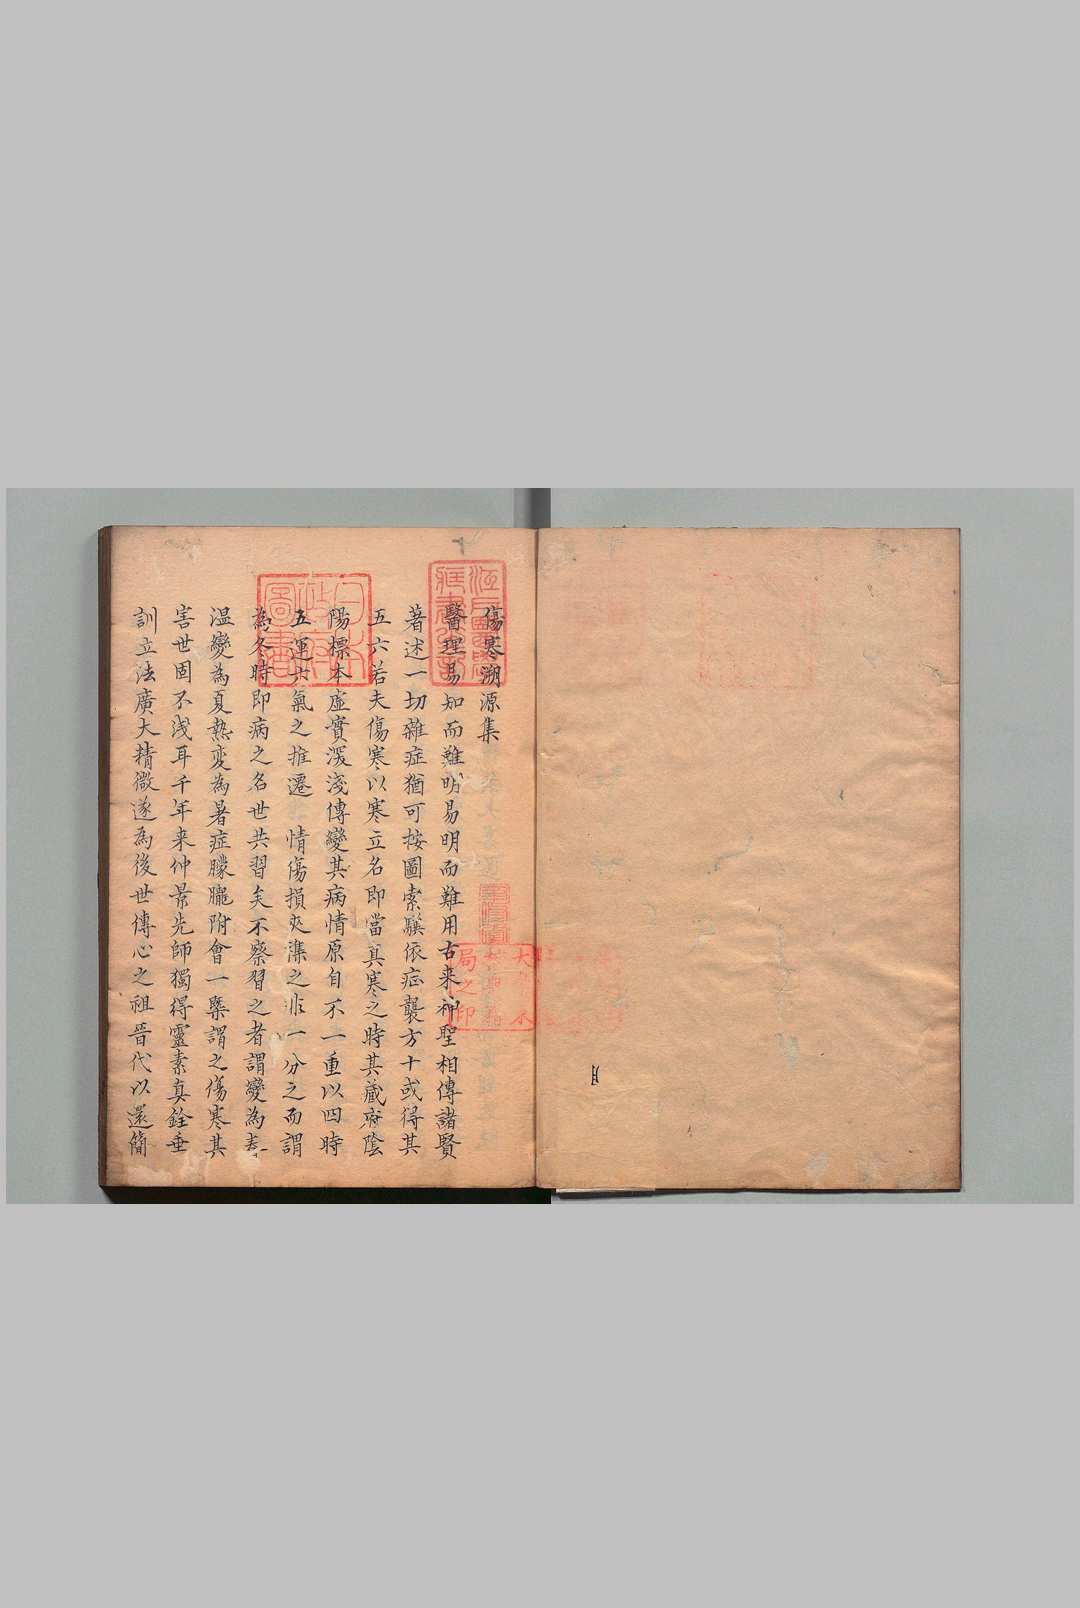 傷寒溯源集
醫理易知而難明易明而難用古来神聖相傳諸賢
著述一切雜症猶可按圖索驥依症襲方十或得其
五六若夫傷寒以寒立名即當真寒之時其藏府陰
陽標本虛實深淺傳變其病情原自不一重以四時
五運六氣之推遷情傷損夾襍之非一分之而謂
為冬時即病之名世共習矣不察習之者謂變為春
温變為夏熱変為暑症朦朧附會一槩謂之傷寒其
害世固不浅耳千年来仲景先師獨得靈素真銓垂
訓立法廣大精微遂為後世傳心之祖晉代以還簡
日本政府圖書
局之印